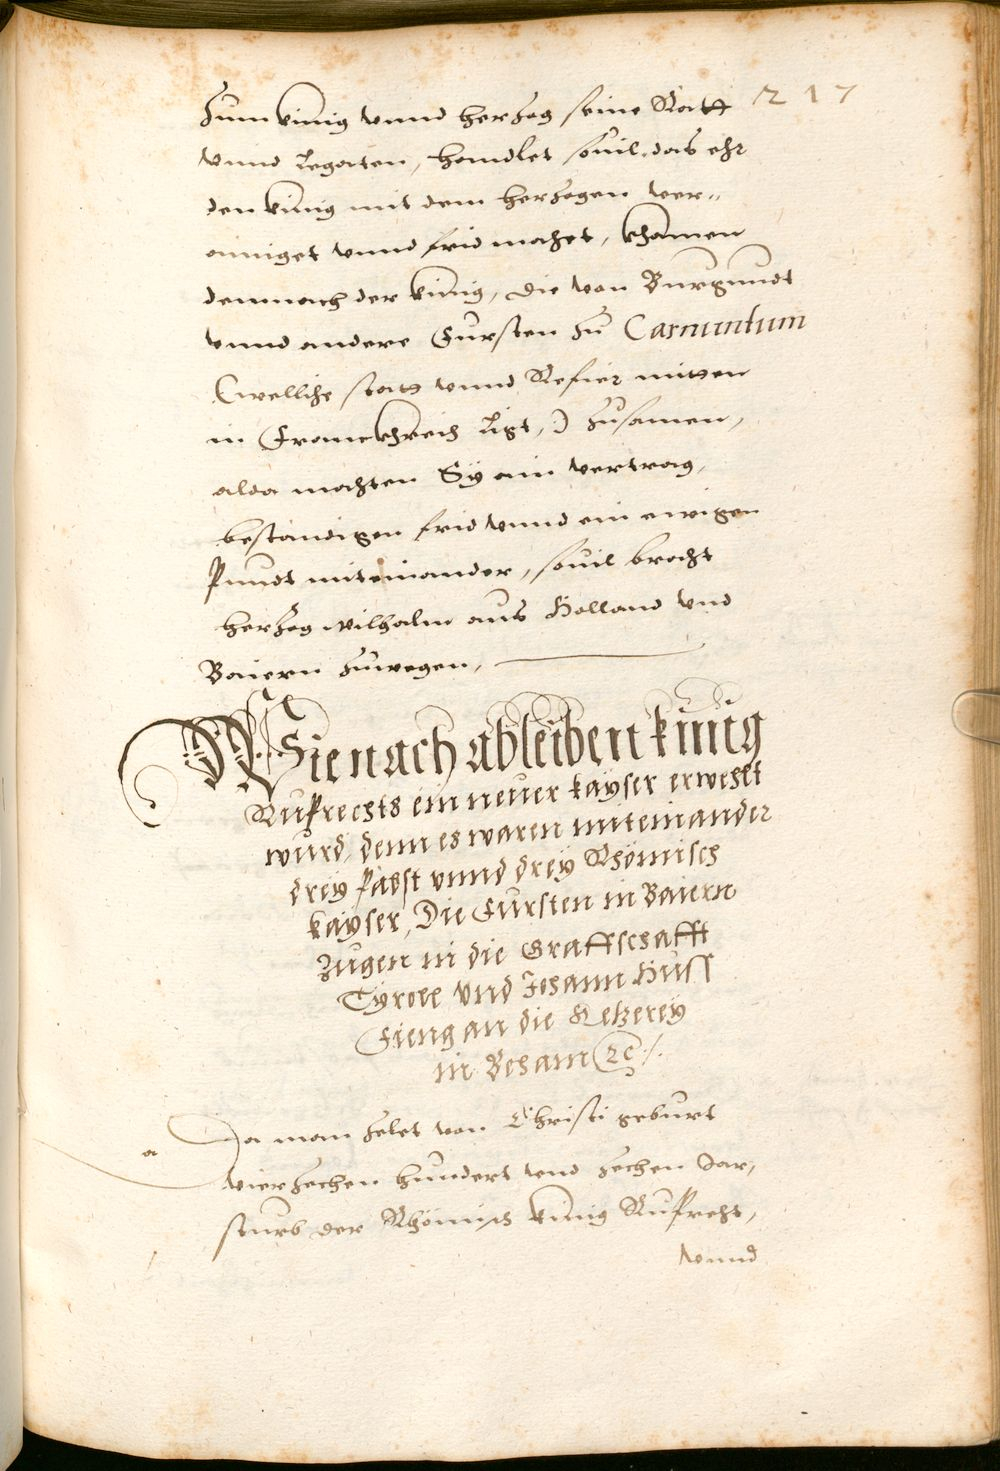 217
zum kinig vnnd herzog seine Rätt
vnnd Legaten, handlet souil das ehr
den kinig mit dem herzogen ver„
ainiget vnnd frid machet, khamen
demnach der kinig, die von Burgundt
vnnd andere Fursten zu Carnuntum
(welliche statt vnnd Refier mitten
in Franckhreich ligt,) zusamen,
alda machten Sy ain vertrag,
bestandigen frid vnnd ein ewigen
Pundt miteinander, souil bracht
herzog wilhalm aus Holland vnd
Baiern zuwegen,
Wie nach ableiben kinig
Ruprechts ein neuer kayser erwehlt
wurd, denn es waren miteinander
drey Päbst vnnd drey Rhömisch
kayser, Die Fursten in Baiern
Zugen in die Graffschafft
Tyroll vnd Johann Huss
Fieng an die Ketzerey
in Beham ꝛc ./.
a
Da man zelet von Christi geburt
vierzechen hundert vnd zechen Jar,
starb der Rhömisch kinig Ruprecht,
vnnd